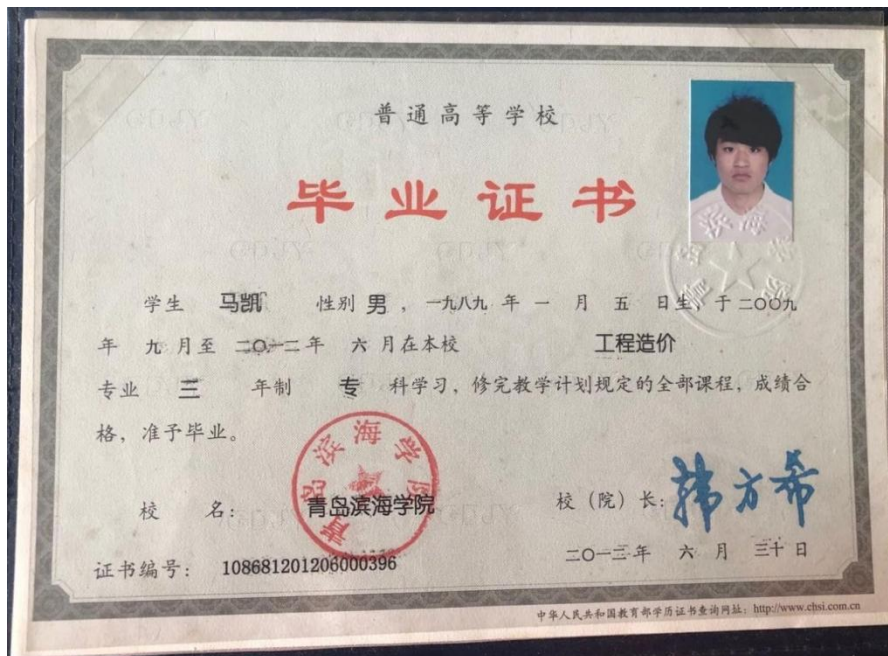 普通高等学校
毕业证书
学生 马凯 性别 男 ，一九八九 年 一 月 五 日生，于 二〇〇九
年 九 月至 二〇一二 年 六 月在本校 工程造价
专业 三 年制 专 科学习，修完教学计划规定的全部课程，成绩合
格，准予毕业。
青岛滨海学院
校 名： 青岛滨海学院 校（院）长：韩方希
二〇一二年 六 月 三十 日
证书编号： 108681201206000396
中华人民共和国教育部学历证书查询网址：http://www.chsi.com.cn